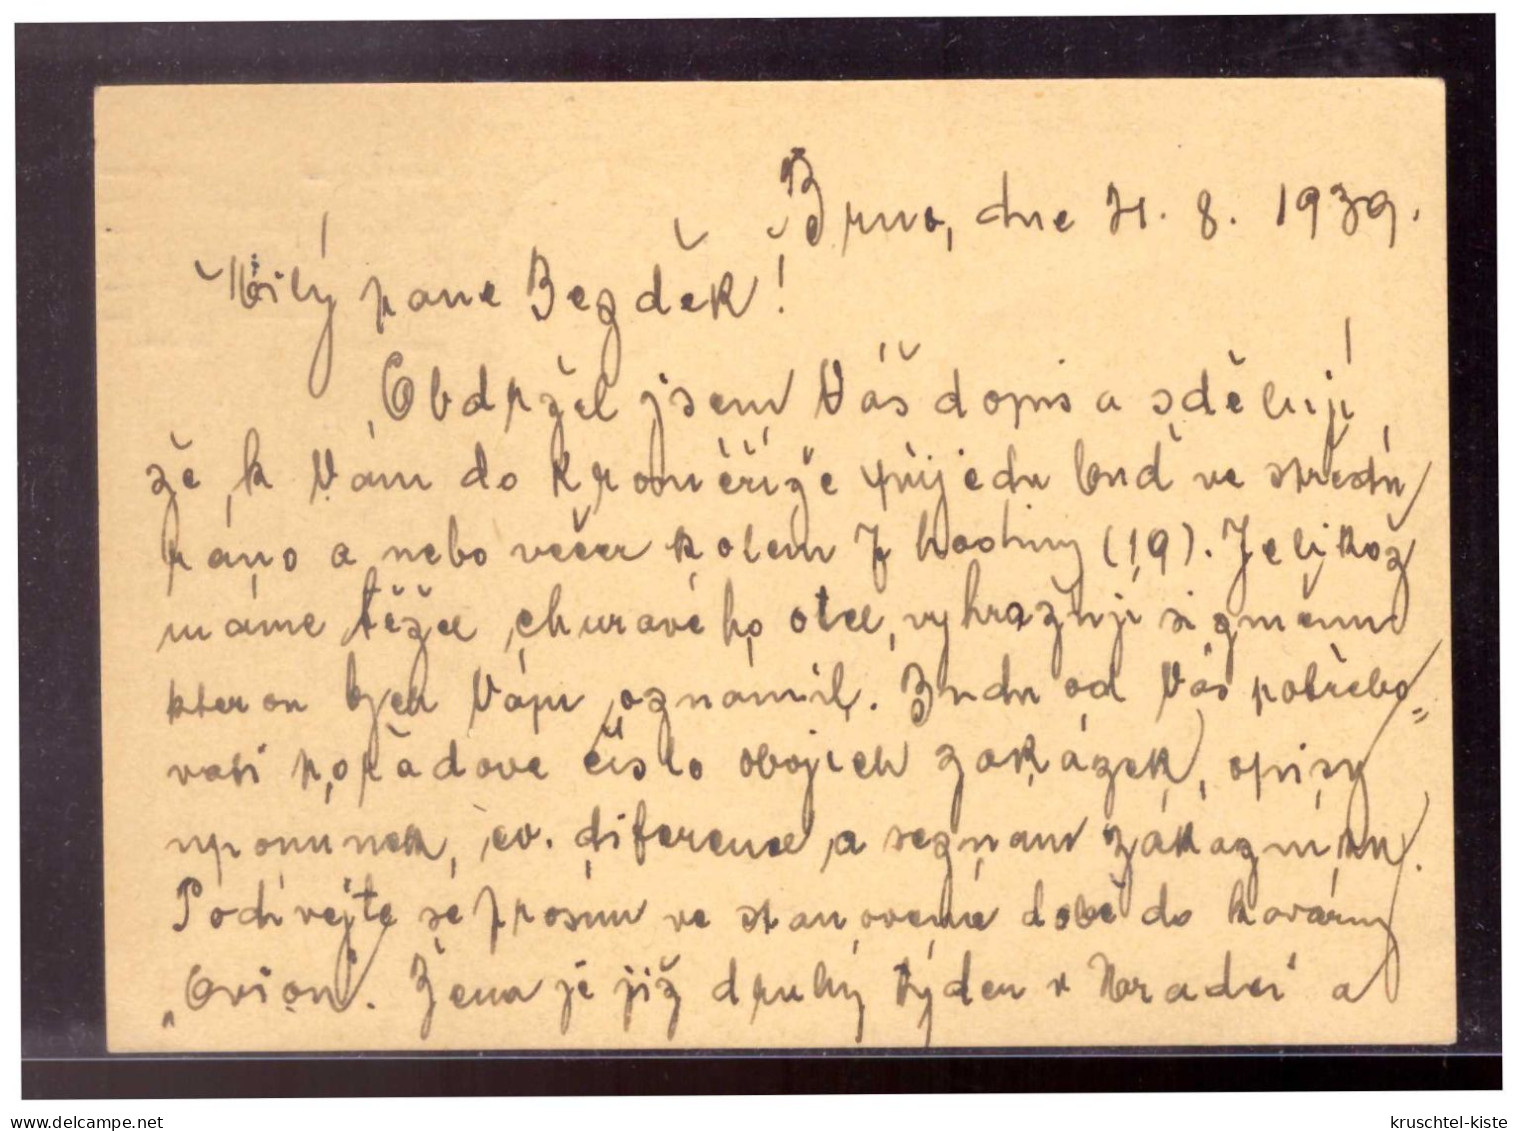 Brno, dne 21. 8. 1939.
Milý pane Bezděk!
Obdržel jsem Váš dopis a sděluji
že k Vám do Kroměříže přijedu buď ve středu
ráno a nebo večer kolem 7 hodiny (19). Jelikož
máme těžce churavého otce, vyhrazuji si změnu
kterou bych Vám oznámil. Budu od Vás potřebo„
vati pořadové číslo obojich zakázek, opisy
upomínek, ev. diference a seznam zákazníků.
Podívejte se prosím ve stanovené době do kavárny
„Orion“. Žena je již druhý týden v Hradci a
www.delcampe.net
kruschtel-kiste